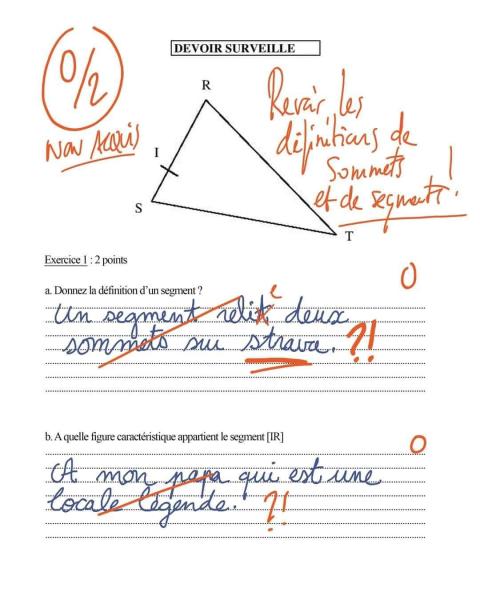 0/2
NON ACQUIS
DEVOIR SURVEILLE
Revoir les
définitions de
sommets
et de segments !
R
I
S
T
Exercice 1 : 2 points
0
a. Donnez la définition d'un segment ?
Un segment relit deux
e
sommets su strava. ?!
b. A quelle figure caractéristique appartient le segment [IR]
0
A mon papa qui est une
locale légende. ?!